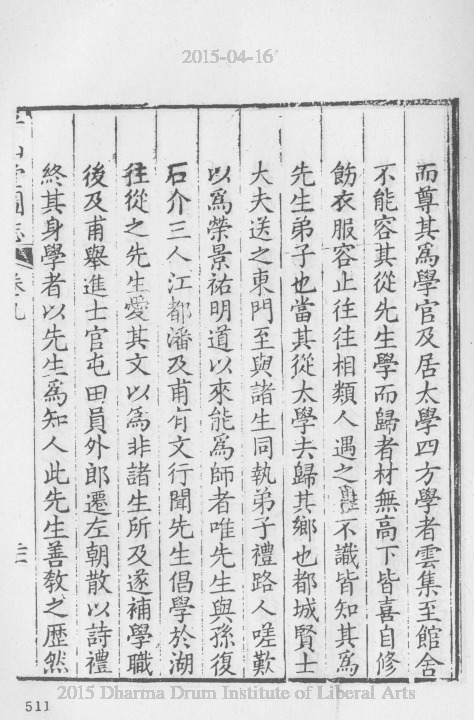 2015-04-16
而尊其爲學官及居太學四方學者雲集至館舍
不能容其從先生學而歸者材無高下皆喜自修
飭衣服容止往往相類人遇之雖不識皆知其爲
先生弟子也當其從太學去歸其鄉也都城賢士
大夫送之東門至與諸生同執弟子禮路人嗟歎
以爲榮景祐明道以來能爲師者唯先生與孫復
石介三人江都潘及甫有文行聞先生倡學於湖
往從之先生愛其文以爲非諸生所及遂補學職
後及甫舉進士官屯田員外郎遷左朝散以詩禮
終其身學者以先生爲知人此先生善敎之歷然
志 卷九
2015 Dharma Drum Institute of Liberal Arts
511